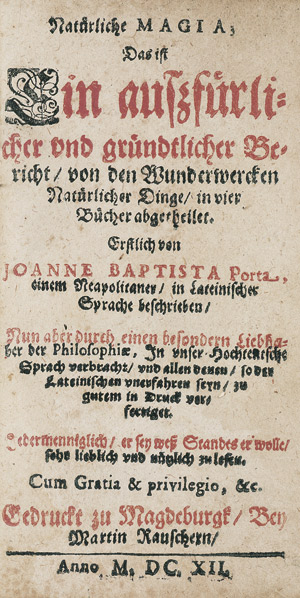 Natürliche MAGIA;
Das ist
Ein auszfürli-
cher vnd gründtlicher Be-
richt/ von den Wunderwercken
Natürlicher Dinge/ in vier
Bücher abgetheilet.
Erstlich von
JOANNE BAPTISTA Porta,
einem Neapolitaner/ in Lateinischer
Sprache beschrieben/
Nun aber durch einen besondern Liebha-
ber der Philosophiæ, In vnser Hochteutsche
Sprach verbracht/ vnd allen denen/ so der
Lateinischen vnerfahren seyn/ zu
gutem in Druck ver/
fertiget.
Jedermenniglich/ er sey weß Standes er wolle/
sehr lieblich vnd nützlich zu lesen.
Cum Gratia & privilegio, &c.
Gedruckt zu Magdeburgk/ Bey
Martin Rauschern/
Anno M. DC. XII.